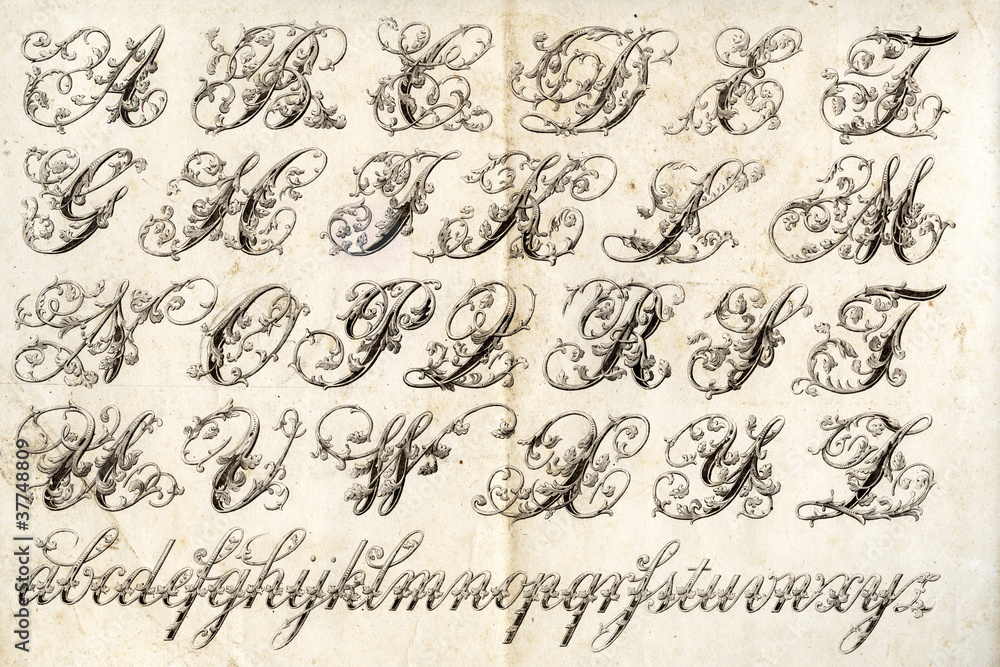 A B C D E F
G H J K L M
N O P Q R S T
U V W X Y Z
abcdefghijklmnopqrſstuvwxyz
Adobe Stock | #37748809